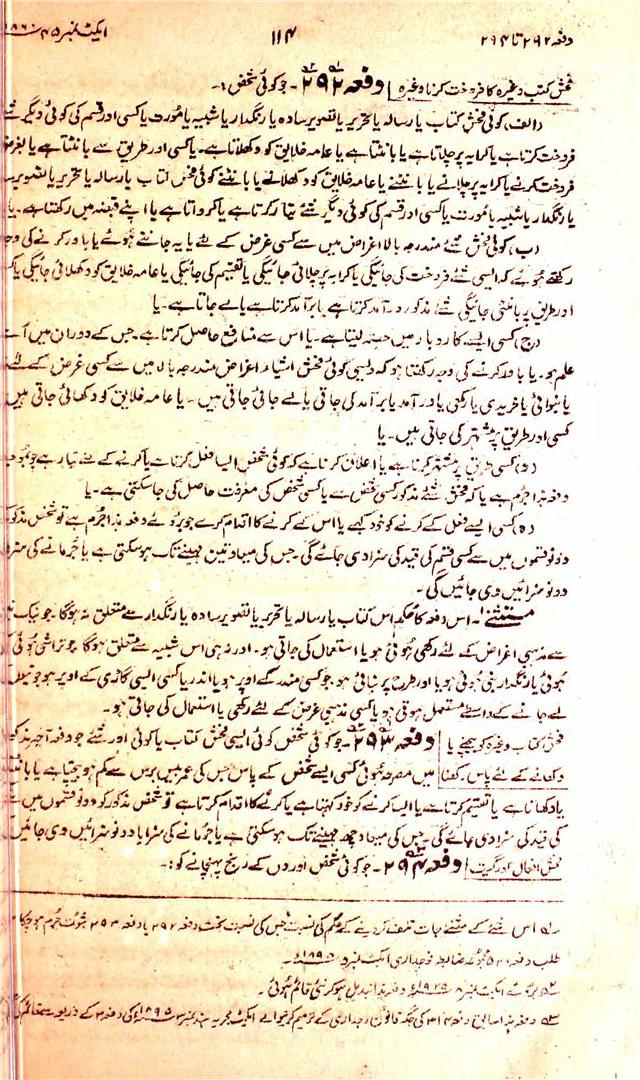 دفعہ ۲۹۲ تا ۲۹۴ ۱۱۴ ایکٹ نمبر ۴۵ ۱۸۶۰
فحش کتب وغیرہ کا فروخت کرنا وغیرہ دفعہ ۲۹۲ - جو کوئی شخص :-
(الف) کوئی فحش کتاب یا رسالہ یا تحریر یا تصویر سادہ یا رنگدار یا شبیہ یا مورت یا کسی اور قسم کی کوئی دیگر شے
فروخت کرتا ہے یا کرایہ پر چلاتا ہے یا بانٹتا ہے یا عامہ خلایق کو دکھلاتا ہے۔ یا کسی اور طریق سے بانٹتا ہے یا بغرض
فروخت کرنے یا کرایہ پر چلانے یا بانٹنے یا عامہ خلایق کو دکھلانے یا بانٹنے کوئی فحش کتاب یا رسالہ یا تحریر یا تصویر
یا رنگدار یا شبیہ یا مورت یا کسی اور قسم کی کوئی دیگر شئے تیار کرتا ہے یا کرواتا ہے یا اپنے قبضہ میں رکھتا ہے۔ یا
(ب) کوئی فحش شئے مندرجہ بالا اغراض میں سے کسی غرض کے لئے یا یہ جانتے ہوئے یا باور کرنے کی وجہ
رکھتے ہوئے کہ ایسی شئے فروخت کی جائیگی یا کرایہ پر چلائی جائیگی یا تقسیم کی جائیگی یا عامہ خلایق کو دکھلائی جائیگی یا کسی
اور طریق پر بانٹی جائیگی شئے مذکور درآمد کرتا ہے برآمد کرتا ہے یا لے جاتا ہے۔ یا
(ج) کسی ایسے کاروبار میں حصہ لیتا ہے۔ یا اس سے منافع حاصل کرتا ہے۔ جس کے دوران میں اُسے
علم ہو۔ یا باور کرنے کی وجہ رکھتا ہو کہ ایسی کوئی فحش اشیاء اغراض مندرجہ بالا میں سے کسی غرض کے لئے
یا بنوائی یا خریدی یا رکھی یا درآمد یا برآمد کی جاتی یا لے جائی جاتی ہیں۔ یا عامہ خلایق کو دکھائی جاتی ہیں
کسی اور طریق پر مشتہر کی جاتی ہیں۔ یا
(د) کسی طریق پر مشتہر کرتا ہے یا اعلان کرتا ہے کہ کوئی شخص ایسا فعل کرتا ہے یا کرنے کے لئے تیار ہے جو بموجب
دفعہ ہذا جرم ہے یا کہ فحش شئے مذکور کسی شخص سے یا کسی شخص کی معرفت حاصل کی جا سکتی ہے۔ یا
(ہ) کسی ایسے فعل کے کرنے کو خود کہے یا اس کے کرنے کا اقدام کرے جو بروئے دفعہ ہذا جرم ہے تو شخص مذکور
دونو قسموں میں سے کسی قسم کی قید کی سزا دی جائے گی جس کی میعاد تین مہینے تک ہو سکتی ہے یا جرمانے کی سزا
دونو سزائیں دی جائیں گی۔
مستثنےٰ۔ اس دفعہ کا حکم اس کتاب یا رسالہ یا تحریر یا تصویر سادہ یا رنگدار سے متعلق نہ ہوگا۔ جو نیک
سے مذہبی اغراض کے لئے رکھی ہوئی ہو یا استعمال کی جاتی ہو۔ اور نہ ہی اس شبیہ سے متعلق ہوگا جو تراشی ہوئی
ہوئی یا رنگدار بنی ہوئی ہو یا اور طرح پر بنائی ہو جو کسی مندر کے اوپر ہو یا اندر یا کسی ایسی گاڑی کے اوپر ہو جو
لے جانے کے واسطے مستعمل ہوتی ہو یا کسی مذہبی غرض کے لئے رکھی یا استعمال کی جاتی ہو۔
فحش کتاب وغیرہ کو بیچنے یا دفعہ ۲۹۳ - جو کوئی شخص کوئی ایسی فحش کتاب یا کوئی اور شئے جو دفعہ آخر مذکور
دکھانے کے لئے پاس رکھنا میں مصرحہ ہوئی کسی ایسے شخص کے پاس جس کی عمر بیس برس سے کم ہو بیچتا ہے یا
یا دکھاتا ہے یا تقسیم کرتا ہے یا ایسا کرنے کو خود کہتا ہے یا کرنے کا اقدام کرتا ہے تو شخص مذکور کو دونو قسموں میں سے
کی قید کی سزا دی جائے گی۔ جس کی میعاد چھ مہینے تک ہو سکتی ہے یا جرمانے کی سزا یا دونو سزائیں دی جائیں
فحش افعال اور گیت دفعہ ۲۹۴ - جو کوئی شخص اوروں کے رنج پہنچانے کو :-
۱؎ اس شئے کے تلف کر دینے کے حکم کی نسبت جس کی نسبت تحت دفعہ ۲۹۲ یا دفعہ ۲۹۳ ثبوت جرم ہو چکا
طلب دفعہ مجموعہ ضابطہ فوجداری ایکٹ نمبر ۵ ۱۸۹۸ء۔
۲؎ بروئے ایکٹ نمبر ۸ ۱۹۲۵ء دفعہ ہذا تبدیل ہو کر نئی قائم ہوئی۔
۳؎ دفعہ ہذا سابق دفعہ ۲۹۴ کی جگہ قانون فوجداری کے ترمیم کرنیوالے ایکٹ مجریہ نمبر ۳ ۱۸۹۵ء کی دفعہ ۳ کے ذریعہ سے قائم